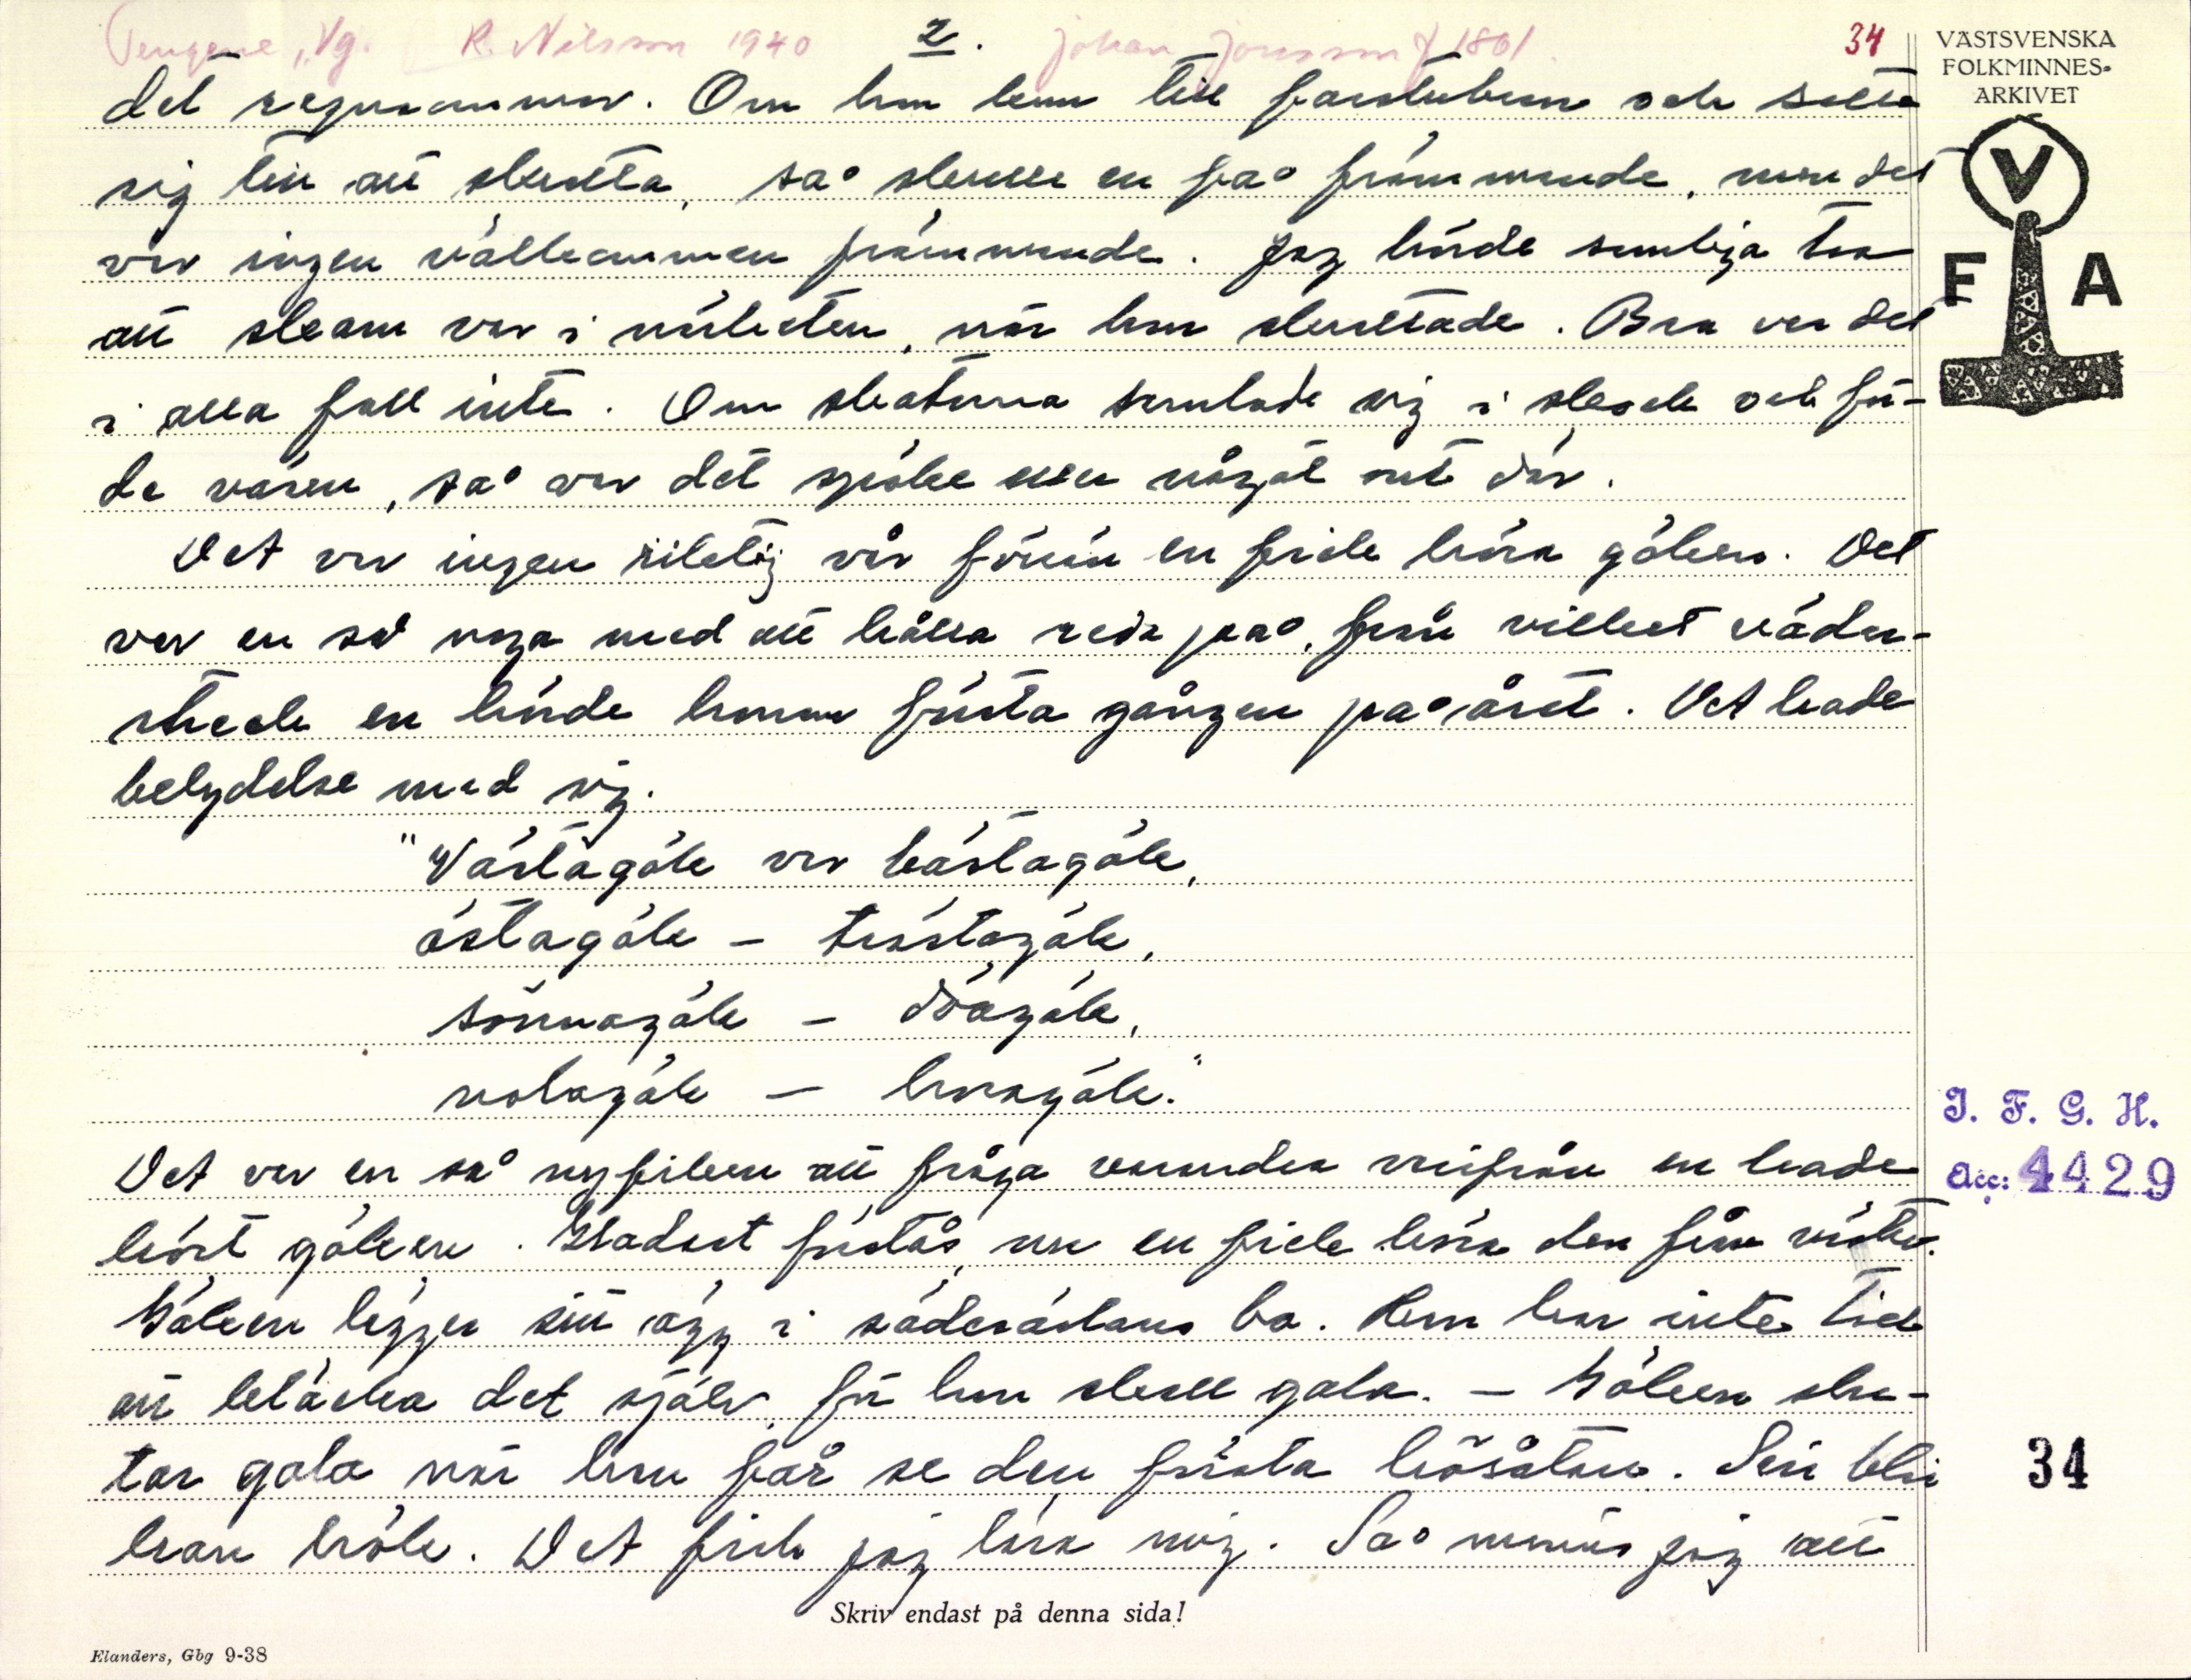 Tengene, Vg. R. Nilsson 1940 2. Johan Jonsson f 1861. 34
VÄSTSVENSKA
FOLKMINNES-
ARKIVET
V
F A
det regnsammer. Om hon kom till farstubron och satte
sig till att skratta, så skulle en få främmande, men det
var ingen välkommen främmande. Jag hörde somliga tro
att skam var i närheten, när hon skrattade. Bra var det
i alla fall inte. Om skatorna samlade sig i skock och fö-
de väsen, så var det spöke eller något ont där.
Det var ingen riktig vår förrän en fick höra göken. Det
var en så noga med att hålla reda på, från vilket väder-
streck en hörde honom första gången på året. Det hade
betydelse med sig.
"Västagök var bästagök,
östagök – tröstagök,
sönnagök – döagök,
nolagök – horagök."
Det var en så nyfiken att fråga varandra varifrån en hade
hört göken. Gladast förstås, um en fick höra den från väster.
Göken lägger sitt ägg i sädesärlans bo. Hon har inte tid
att kläcka det själv, för hon skall gala. – Göken slu-
tar gala när hon får se den första hösåten. Sen blir
han hök. Det fick jag lära mig. Så minns jag att
I. F. G. H.
Acc: 4429
34
Skriv endast på denna sida!
Elanders, Gbg 9-38